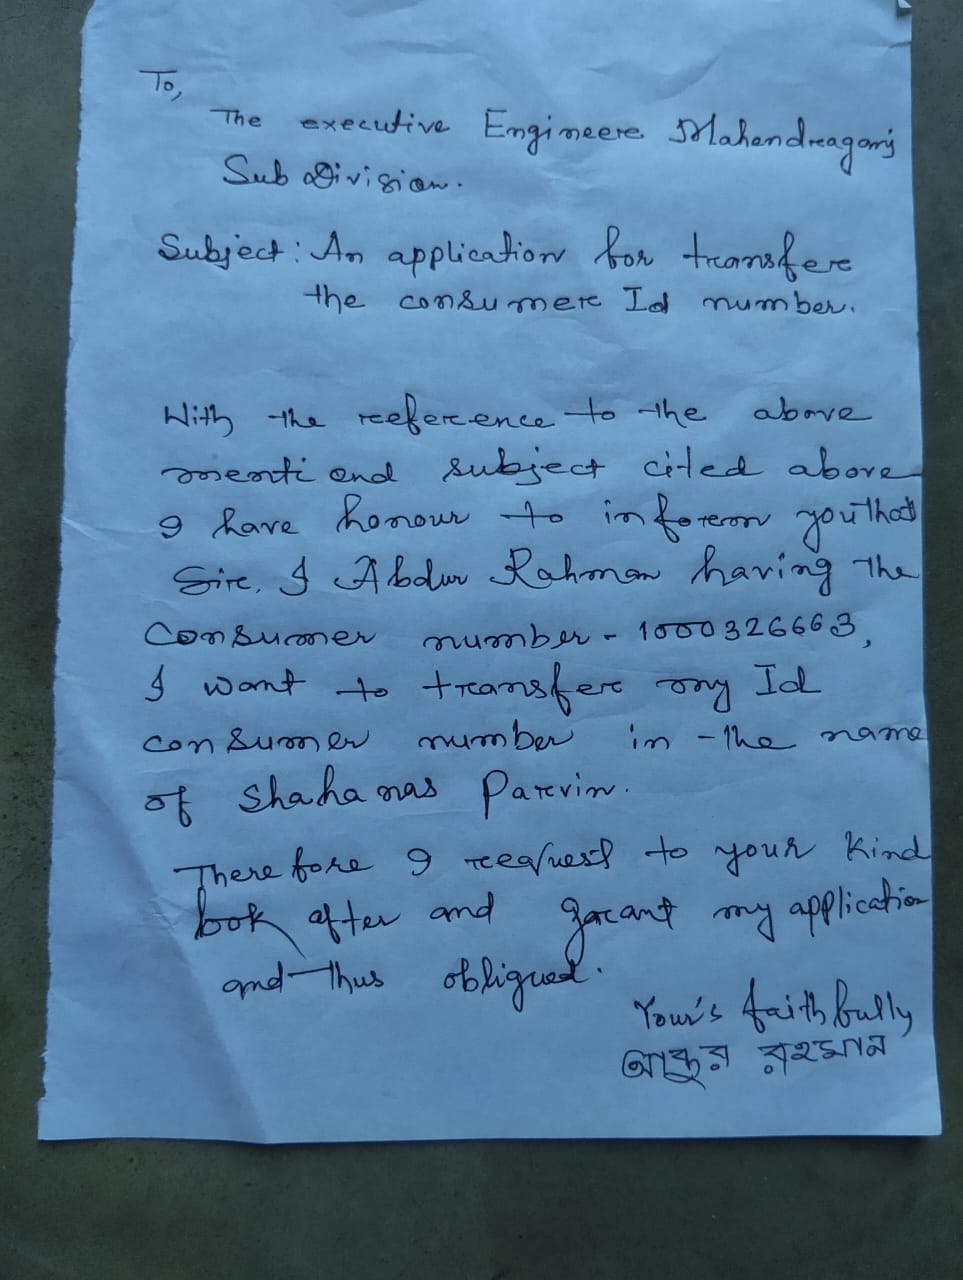 To,
The executive Engineere Mahendraganj
Sub Division.
Subject: An application for transfere
the consumere Id number.
With the reeference to the above
mentiond subject cited above
I have honour to inform you that
Sire, I Abdur Rahman having the
Consumer number - 1000326663,
I want to transfere my Id
consumer number in the name
of Shahanas Parvin.
Therefore I reequest to your kind
look after and garant my application
and thus obligued.
Your's faithfully
আব্দুর রহমান